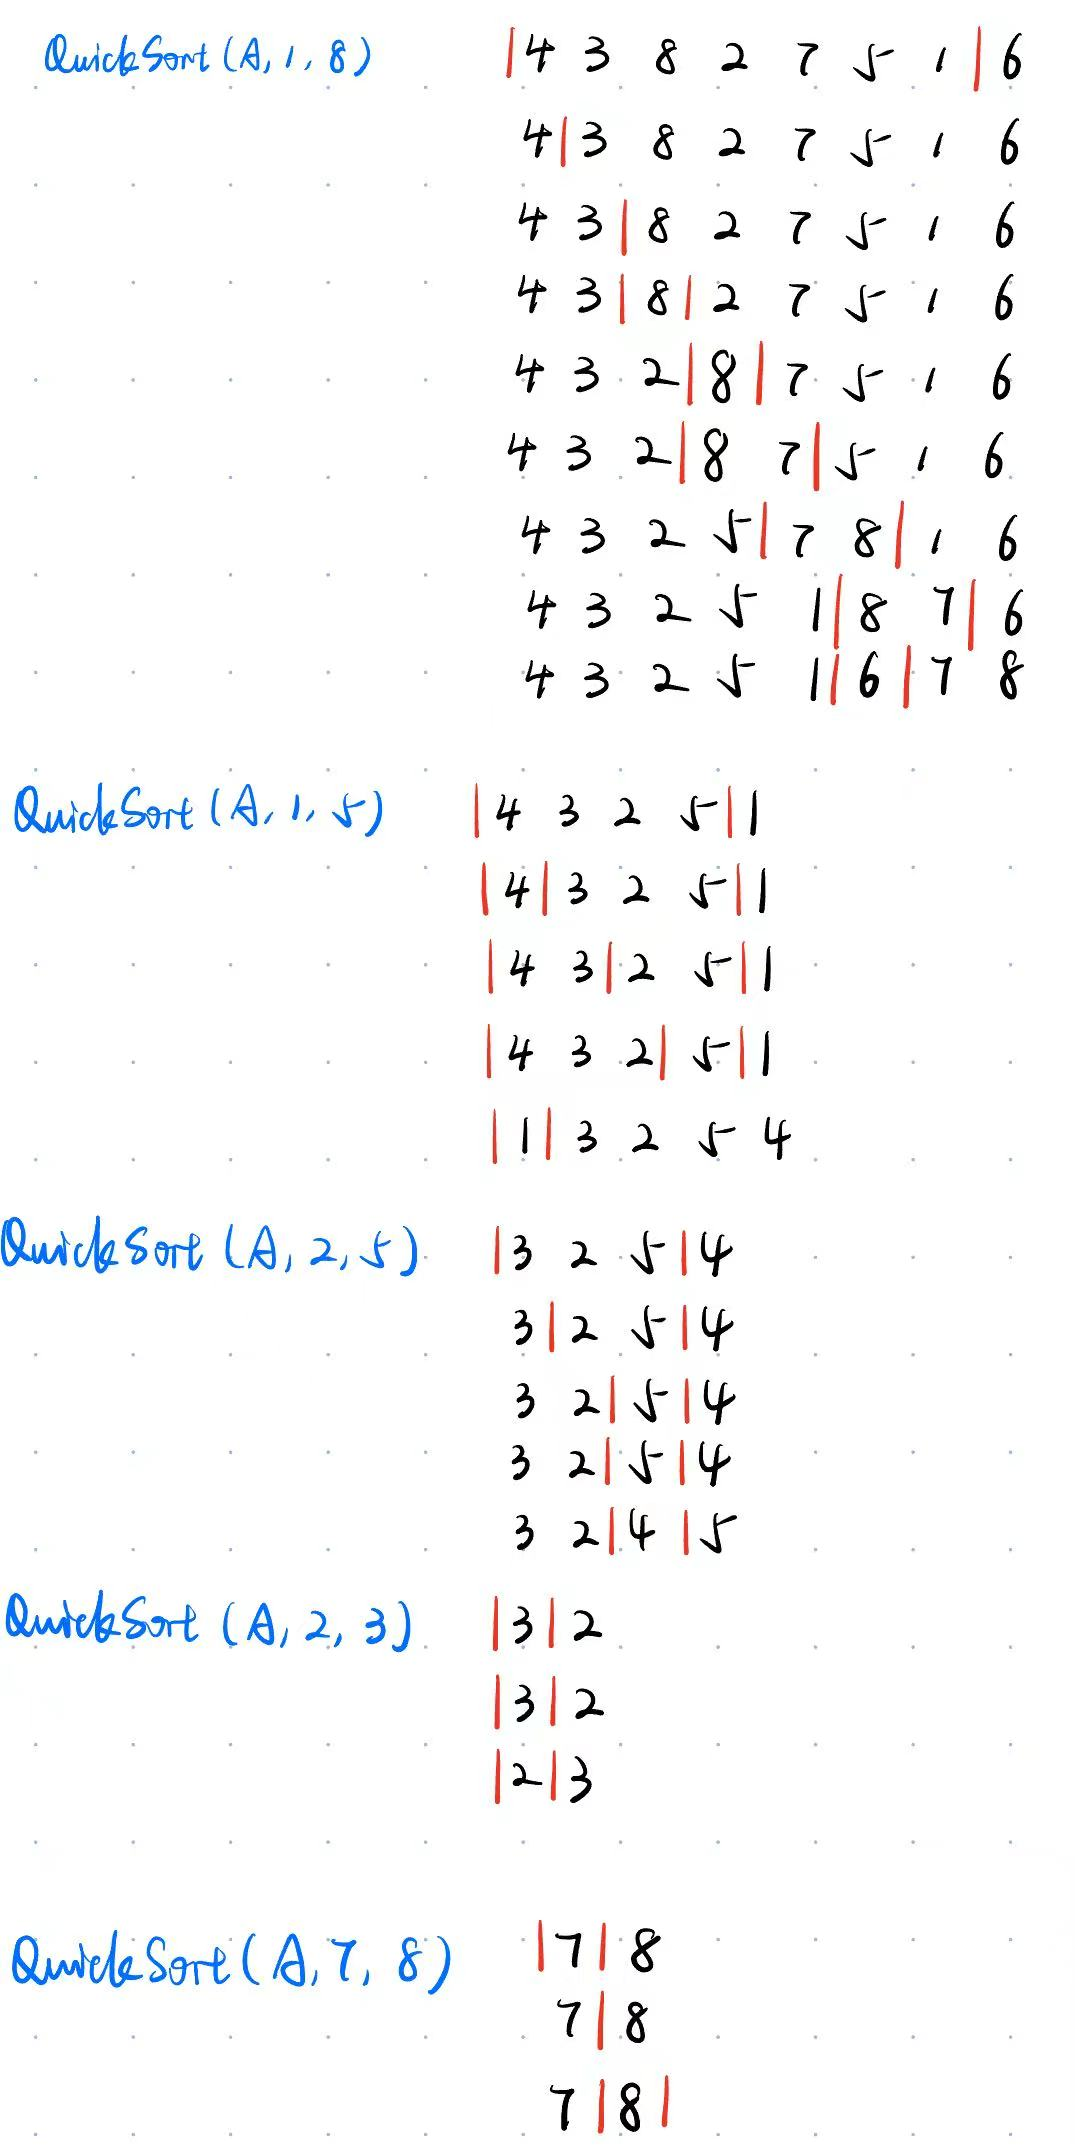 QuickSort (A, 1, 8) |4 3 8 2 7 5 1|6
4|3 8 2 7 5 1 6
4 3|8 2 7 5 1 6
4 3|8|2 7 5 1 6
4 3 2|8|7 5 1 6
4 3 2|8 7|5 1 6
4 3 2 5|7 8|1 6
4 3 2 5 1|8 7|6
4 3 2 5 1|6|7 8
QuickSort (A, 1, 5) |4 3 2 5|1
|4|3 2 5|1
|4 3|2 5|1
|4 3 2|5|1
|1|3 2 5 4
QuickSort (A, 2, 5) |3 2 5|4
3|2 5|4
3 2|5|4
3 2|5|4
3 2|4|5
QuickSort (A, 2, 3) |3|2
|3|2
|2|3
QuickSort (A, 7, 8) |7|8
7|8
7|8|